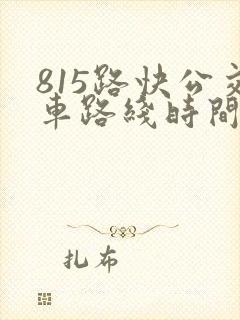 815路快公交
車路綫時間
扎布